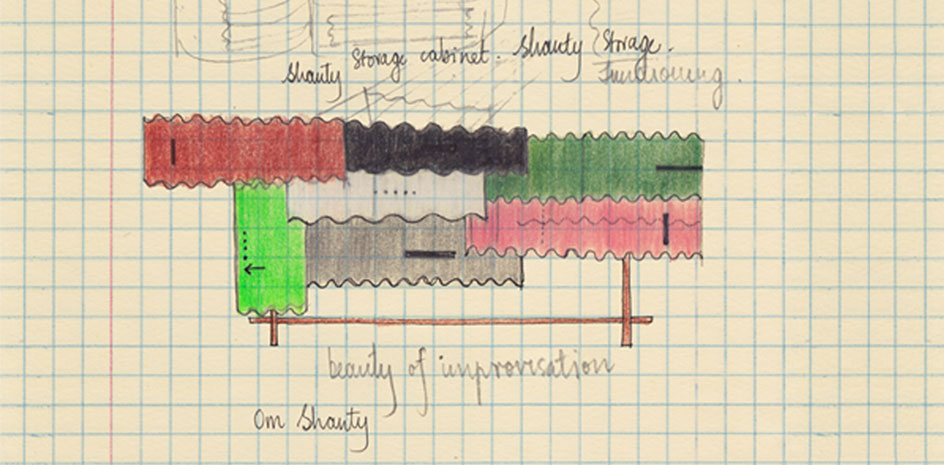 Shanty Storage cabinet. Shanty Storage.
Functioning.
beauty of improvisation
Om Shanty